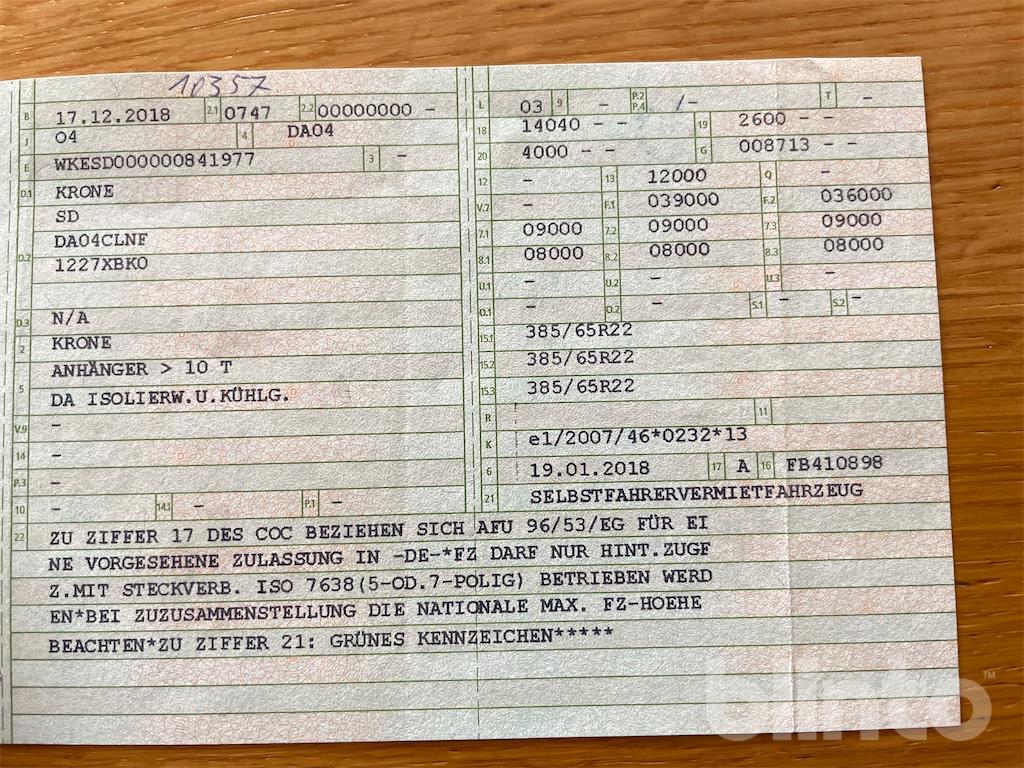 10357
B 17.12.2018 2.1 0747 2.2 00000000 -
J 04 4 DA04
E WKESD000000841977 3 -
D.1 KRONE
SD
DA04CLNF
D.2 1227XBK0
D.3 N/A
2 KRONE
ANHÄNGER > 10 T
5 DA ISOLIERW.U.KÜHLG.
V.9 -
14 -
P.3 -
10 - 14.1 - P.1 -
L 03 9 - P.2 P.4 /- T -
18 14040 - - 19 2600 - -
20 4000 - - G 008713 - -
12 - 13 12000 Q -
V.7 - F.1 039000 F.2 036000
7.1 09000 7.2 09000 7.3 09000
8.1 08000 8.2 08000 8.3 08000
U.1 - U.2 - U.3 -
O.1 - O.2 - S.1 - S.2 -
15.1 385/65R22
15.2 385/65R22
15.3 385/65R22
R 11
K e1/2007/46*0232*13
6 19.01.2018 17 A 16 FB410898
21 SELBSTFAHRERVERMIETFAHRZEUG
22 ZU ZIFFER 17 DES COC BEZIEHEN SICH AFU 96/53/EG FÜR EI
NE VORGESEHENE ZULASSUNG IN -DE-*FZ DARF NUR HINT.ZUGF
Z.MIT STECKVERB. ISO 7638(5-OD.7-POLIG) BETRIEBEN WERD
EN*BEI ZUZUSAMMENSTELLUNG DIE NATIONALE MAX. FZ-HOEHE
BEACHTEN*ZU ZIFFER 21: GRÜNES KENNZEICHEN*****
blinto™